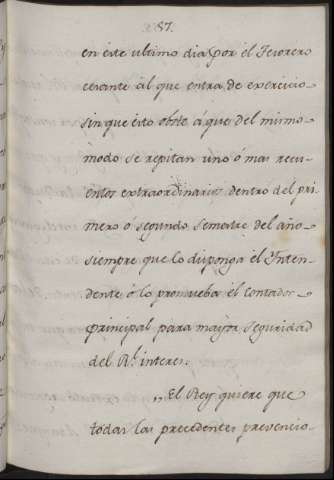 87.
en éste ultimo dia, por él Tesorero
cesante ál que entra de exercicio
sin que ésto obste á que del mismo
modo se repitan uno ó mas recu-
entos extraordinarios dentro del pri
mero ó segundo Semestre del año
siempre que lo disponga él Inten-
dente ó lo promueba él Contador
principal para mayor seguridad
del Rl. interes.
,, El Rey quiere que
todas las precedentes prevencio-